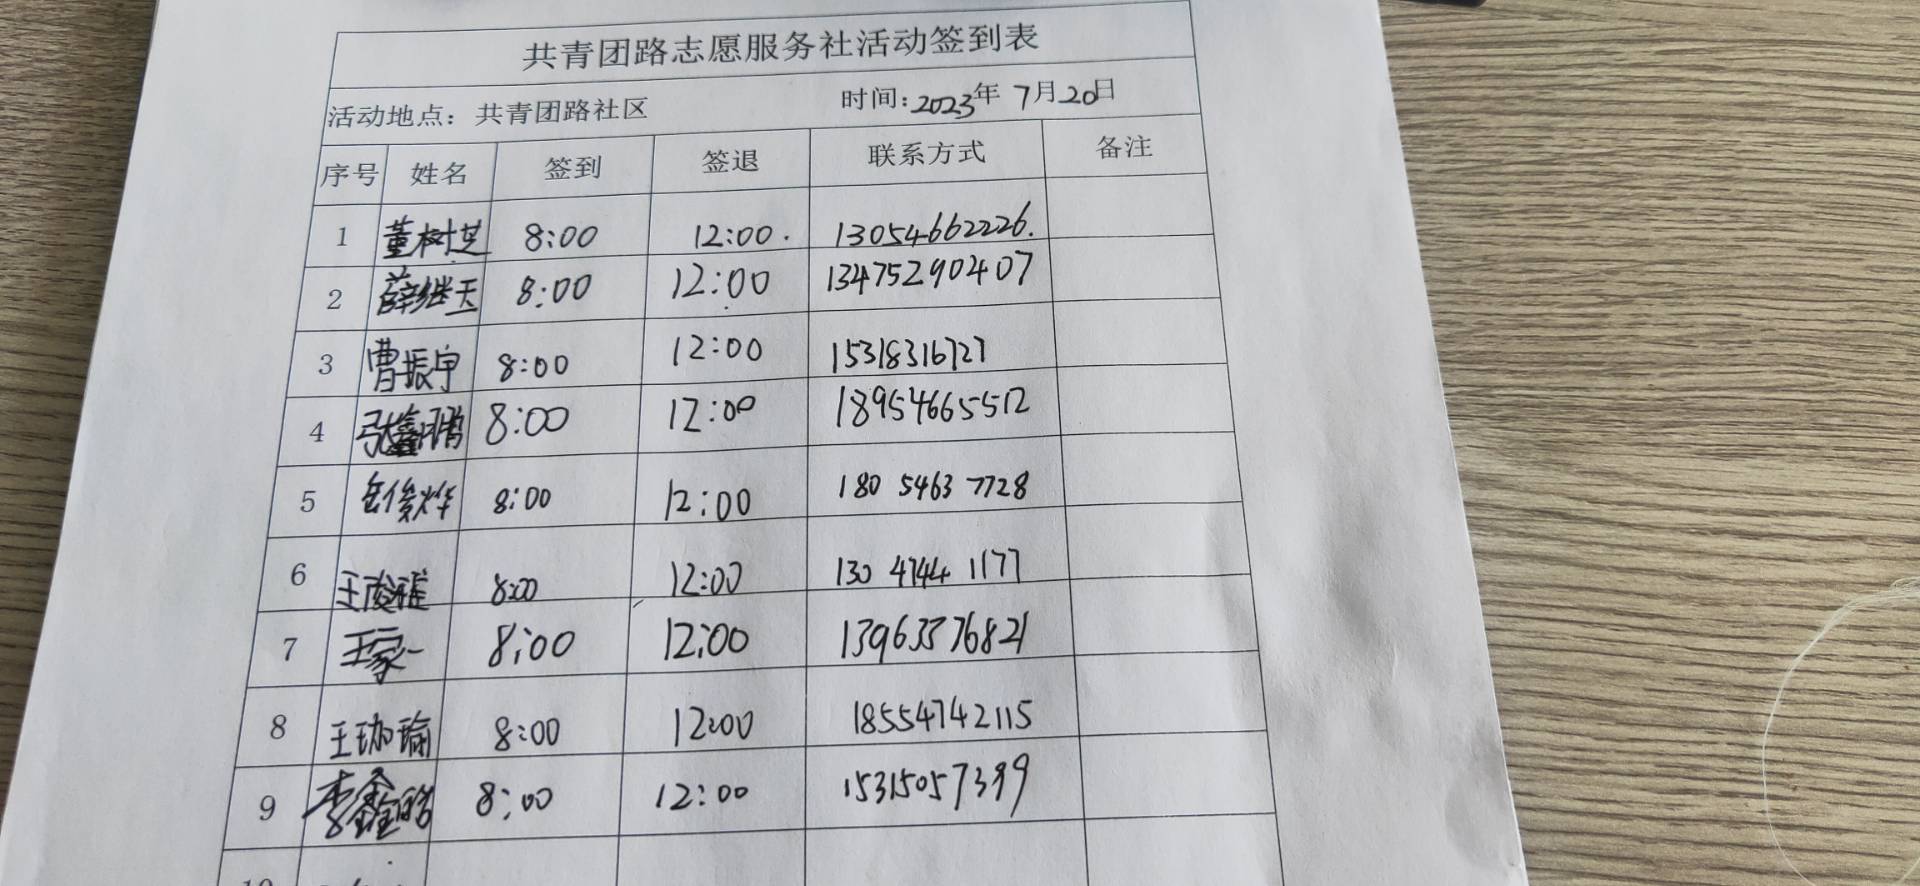 共青团路志愿服务社活动签到表
活动地点：共青团路社区 时间：2023年7月20日
序号 姓名 签到 签退 联系方式 备注
1 董树芝 8:00 12:00. 13054662226.
2 薛继玉 8:00 12:00 13475290407
3 曹振宇 8:00 12:00 15318316727
4 张鑫鹏 8:00 12:00 18954665512
5 岳俊烨 8:00 12:00 180 5463 7728
6 王 8:00 12:00 130 4744 1177
7 王家一 8:00 12:00 13963376821
8 王珈瑜 8:00 12:00 18554742115
9 李鑫皓 8:00 12:00 15315057399
10